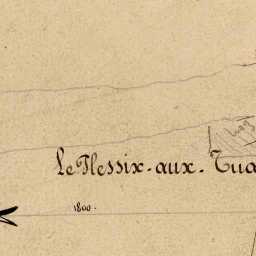 Le Plessix-aux-Tua
1800.